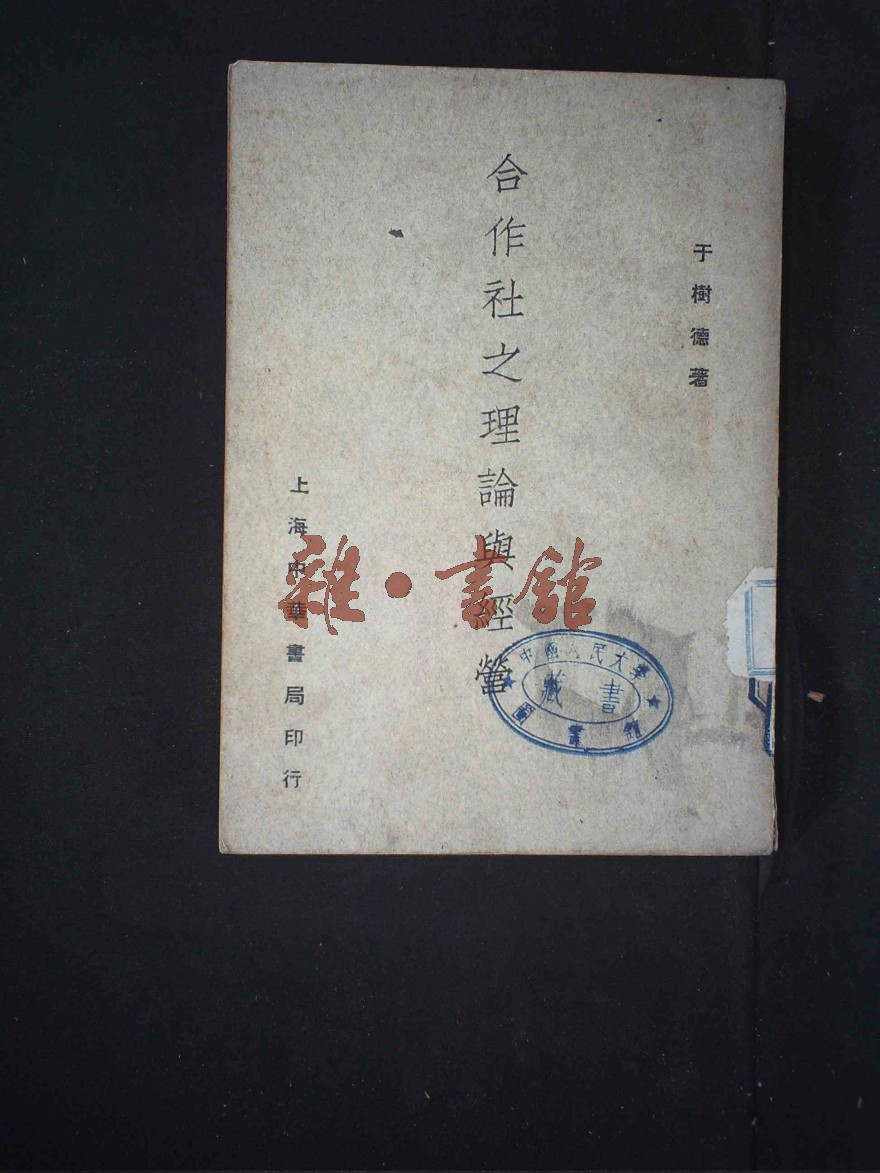 于樹德著
合作社之理論與經營
上海中華書局印行
雜·書館
中國人民大學
藏書
圖書館